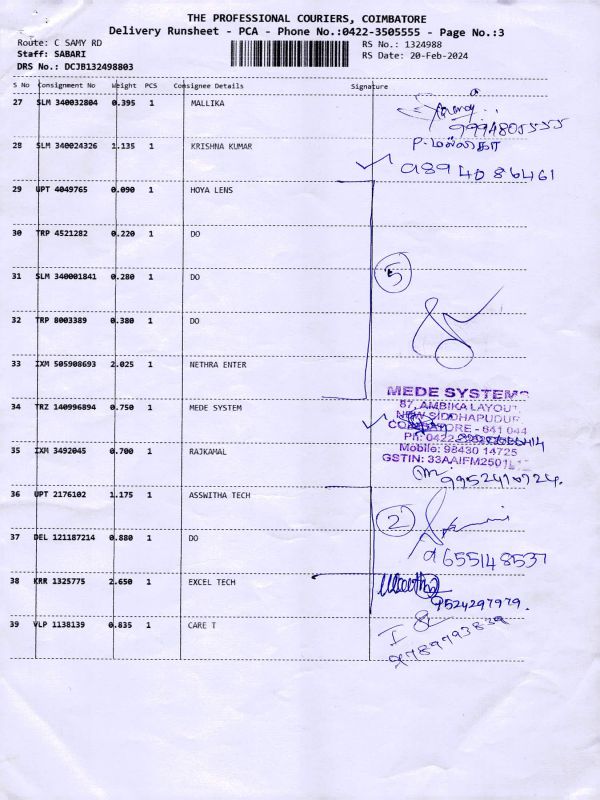 THE PROFESSIONAL COURIERS, COIMBATORE
Delivery Runsheet - PCA - Phone No.:0422-3505555 - Page No.:3
Route: C SAMY RD
RS No.: 1324988
Staff: SABARI
RS Date: 20-Feb-2024
DRS No.: DCJB132498803
S No Consignment No Weight PCS Consignee Details Signature
27 SLM 340032804 0.395 1 MALLIKA
9994805555
28 SLM 340024326 1.135 1 KRISHNA KUMAR
P. மல்லிகா
9894086461
29 UPT 4049765 0.090 1 HOYA LENS
30 TRP 4521282 0.220 1 DO
31 SLM 340001841 0.280 1 DO
5
32 TRP 8003389 0.380 1 DO
33 IXM 505908693 2.025 1 NETHRA ENTER
MEDE SYSTEMS
34 TRZ 140996894 0.750 1 MEDE SYSTEM
87, AMBIKA LAYOUT,
NEW SIDDHAPUDUR
COIMBATORE - 641 044
Ph: 0422
Mobile: 98430 14725
35 IXM 3492045 0.700 1 RAJKAMAL
GSTIN: 33AAIFM2501L
36 UPT 2176102 1.175 1 ASSWITHA TECH
2
37 DEL 121187214 0.880 1 DO
9655148537
38 KRR 1325775 2.650 1 EXCEL TECH
9524297979.
39 VLP 1138139 0.835 1 CARE T
9789793839